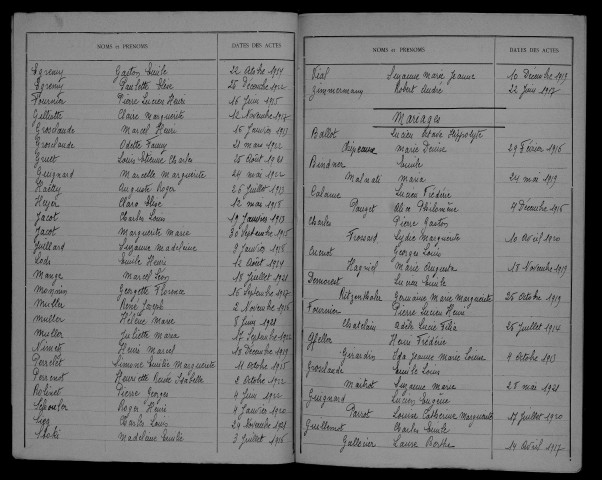 NOMS et PRÉNOMS DATES DES ACTES
Egremy Gaston Emile 22 1914
Egremy Paulette Elise 26 Décembre 1922
Fournier Pierre Lucien Henri 16 Juin 1915
Gilliotte Claire Marguerite 12 Novembre 1917
Grosclaude Marcel Henri 16 Janvier 1913
Grosclaude Odette Fanny 21 mars 1922
Gruet Louis Etienne Charles 25 Août 1921
Guignard Marcelle Marguerite 24 mai 1922
Auguste Roger 26 Juillet 1913
Heyer Clara Elise 12 mai 1918
Jacot Charles Louis 19 Janvier 1913
Jacot Marguerite Marie 30 Septembre 1915
Juillard Suzanne Madeleine 9 Janvier 1918
Lods Emile Henri 12 Août 1914
Mange Marcel Léon 18 Juillet 1921
Georgette Florence 16 Septembre 1917
Muller René Joseph 2 Novembre 1916
Muller Hélène Marie 8 Juin 1921
Muller Juliette Maria 17 Septembre 1922
Henri Marcel 10 Décembre 1919
Perretet Simone Emilie Marguerite 11 Octobre 1915
Perrenot Henriette Renée Isabelle 2 Octobre 1922
Robinet Pierre Georges 4 Juin 1922
Roger Henri 9 Janvier 1920
Charles Louis 29 Novembre 1921
Madeleine Emilie 3 Juillet 1916
NOMS et PRÉNOMS DATES DES ACTES
Vial Suzanne Marie Jeanne 10 Décembre 1919
Zimmermann Robert André 22 Juin 1917
Mariages
Ballot Lucien Hippolyte
Marie Denise 29 Février 1916
Bindner Emile
Malnati Maria 24 mai 1919
Calame Lucien Frédéric
Pauget Alice Philomène 4 Décembre 1916
Charles Pierre Gaston
Frossard Lydie Marguerite 10 Avril 1920
Georges Louis
Marie Augusta 18 Novembre 1919
Demorest Lucien Emile
Ritzenthaler Germaine Marie Marguerite 25 Octobre 1919
Fournier Pierre Lucien Henri
Chatelain Adèle Lucie 25 Juillet 1914
Gfeller Henri Frédéric
Girardin Oda Jeanne Marie Louise 9 Octobre 1913
Groslaude Emile Louis
Suzanne Marie 28 mai 1921
Guignard Lucien Eugène
Parrot Louise Catherine Marguerite 17 Juillet 1920
Guillemot Charles Emile
Laure Berthe 14 Avril 1917